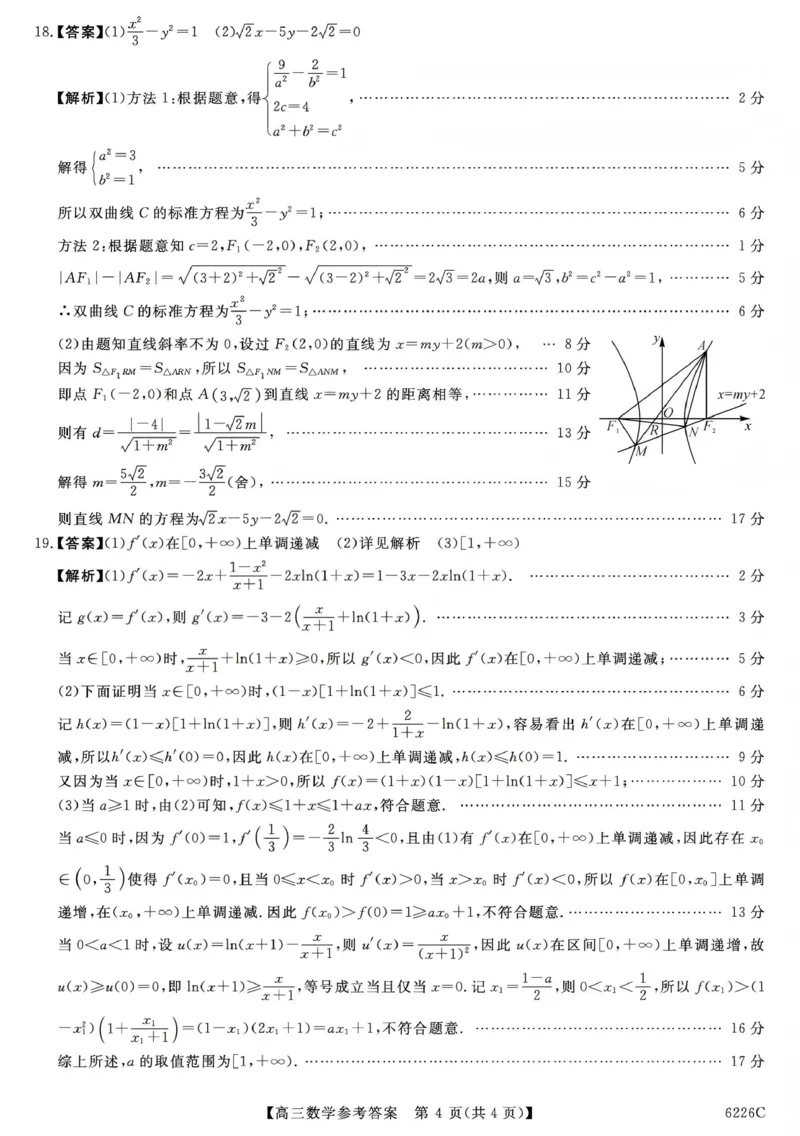 18.【答案】(1) x²/3 - y²=1 (2) √2x-5y-2√2=0
【解析】(1)方法 1:根据题意,得{ 9/a² - 2/b² =1, 2c=4, a²+b²=c² , …… 2 分
解得{ a²=3, b²=1 , …… 5 分
所以双曲线 C 的标准方程为 x²/3 - y²=1; …… 6 分
方法 2:根据题意知 c=2,F₁(-2,0),F₂(2,0), …… 1 分
|AF₁|-|AF₂|=√((3+2)²+√2²) - √((3-2)²+√2²)=2√3=2a,则 a=√3,b²=c²-a²=1, …… 5 分
∴双曲线 C 的标准方程为 x²/3 - y²=1; …… 6 分
(2)由题知直线斜率不为 0,设过 F₂(2,0)的直线为 x=my+2(m>0), … 8 分
因为 S△F₁RM=S△ARN,所以 S△F₁NM=S△ANM, …… 10 分
即点 F₁(-2,0)和点 A(3,√2)到直线 x=my+2 的距离相等, …… 11 分
则有 d=|-4|/√(1+m²)=|1-√2m|/√(1+m²), …… 13 分
解得 m=5√2/2,m=-3√2/2(舍), …… 15 分
则直线 MN 的方程为√2x-5y-2√2=0. …… 17 分
y
A
x=my+2
O
F₁
R
N
F₂
x
M
19.【答案】(1)f′(x)在[0,+∞)上单调递减 (2)详见解析 (3)[1,+∞)
【解析】(1)f′(x)=-2x+(1-x²)/(x+1)-2xln(1+x)=1-3x-2xln(1+x). …… 2 分
记 g(x)=f′(x),则 g′(x)=-3-2(x/(x+1)+ln(1+x)). …… 3 分
当 x∈[0,+∞)时,x/(x+1)+ln(1+x)≥0,所以 g′(x)<0,因此 f′(x)在[0,+∞)上单调递减; …… 5 分
(2)下面证明当 x∈[0,+∞)时,(1-x)[1+ln(1+x)]≤1. …… 6 分
记 h(x)=(1-x)[1+ln(1+x)],则 h′(x)=-2+2/(1+x)-ln(1+x),容易看出 h′(x)在[0,+∞)上单调递
减,所以h′(x)≤h′(0)=0,因此 h(x)在[0,+∞)上单调递减,h(x)≤h(0)=1. …… 9 分
又因为当 x∈[0,+∞)时,1+x>0,所以 f(x)=(1+x)(1-x)[1+ln(1+x)]≤x+1; …… 10 分
(3)当 a≥1 时,由(2)可知,f(x)≤1+x≤1+ax,符合题意. …… 11 分
当 a≤0 时,因为 f′(0)=1,f′(1/3)=-2/3 ln 4/3<0,且由(1)有 f′(x)在[0,+∞)上单调递减,因此存在 x₀
∈(0,1/3)使得 f′(x₀)=0,且当 0≤x<x₀ 时 f′(x)>0,当 x>x₀ 时 f′(x)<0,所以 f(x)在[0,x₀]上单调
递增,在(x₀,+∞)上单调递减.因此 f(x₀)>f(0)=1≥ax₀+1,不符合题意. …… 13 分
当 0<a<1 时,设 u(x)=ln(x+1)-x/(x+1),则 u′(x)=x/(x+1)²,因此 u(x)在区间[0,+∞)上单调递增,故
u(x)≥u(0)=0,即 ln(x+1)≥x/(x+1),等号成立当且仅当 x=0.记 x₁=(1-a)/2,则 0<x₁<1/2,所以 f(x₁)>(1
-x₁²)(1+x₁/(x₁+1))=(1-x₁)(2x₁+1)=ax₁+1,不符合题意. …… 16 分
综上所述,a 的取值范围为[1,+∞). …… 17 分
【高三数学参考答案 第 4 页(共 4 页)】 6226C